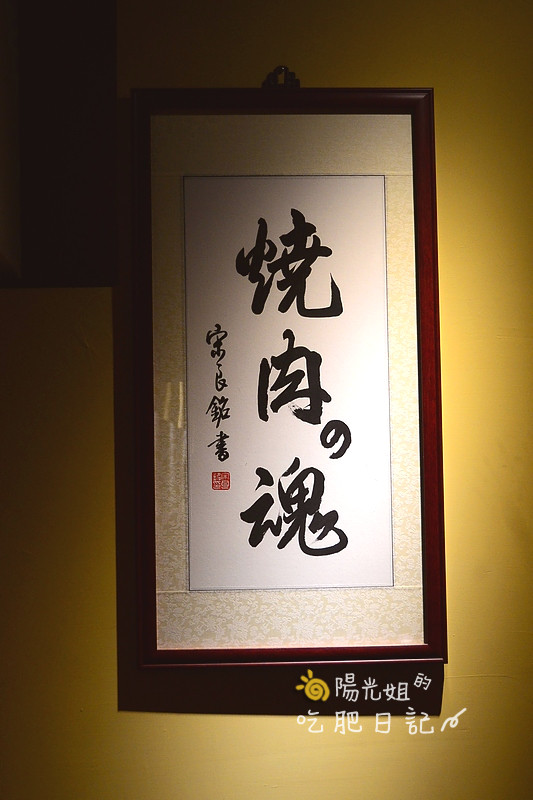 焼肉の魂
宋良銘書
陽光姐的
吃肥日記